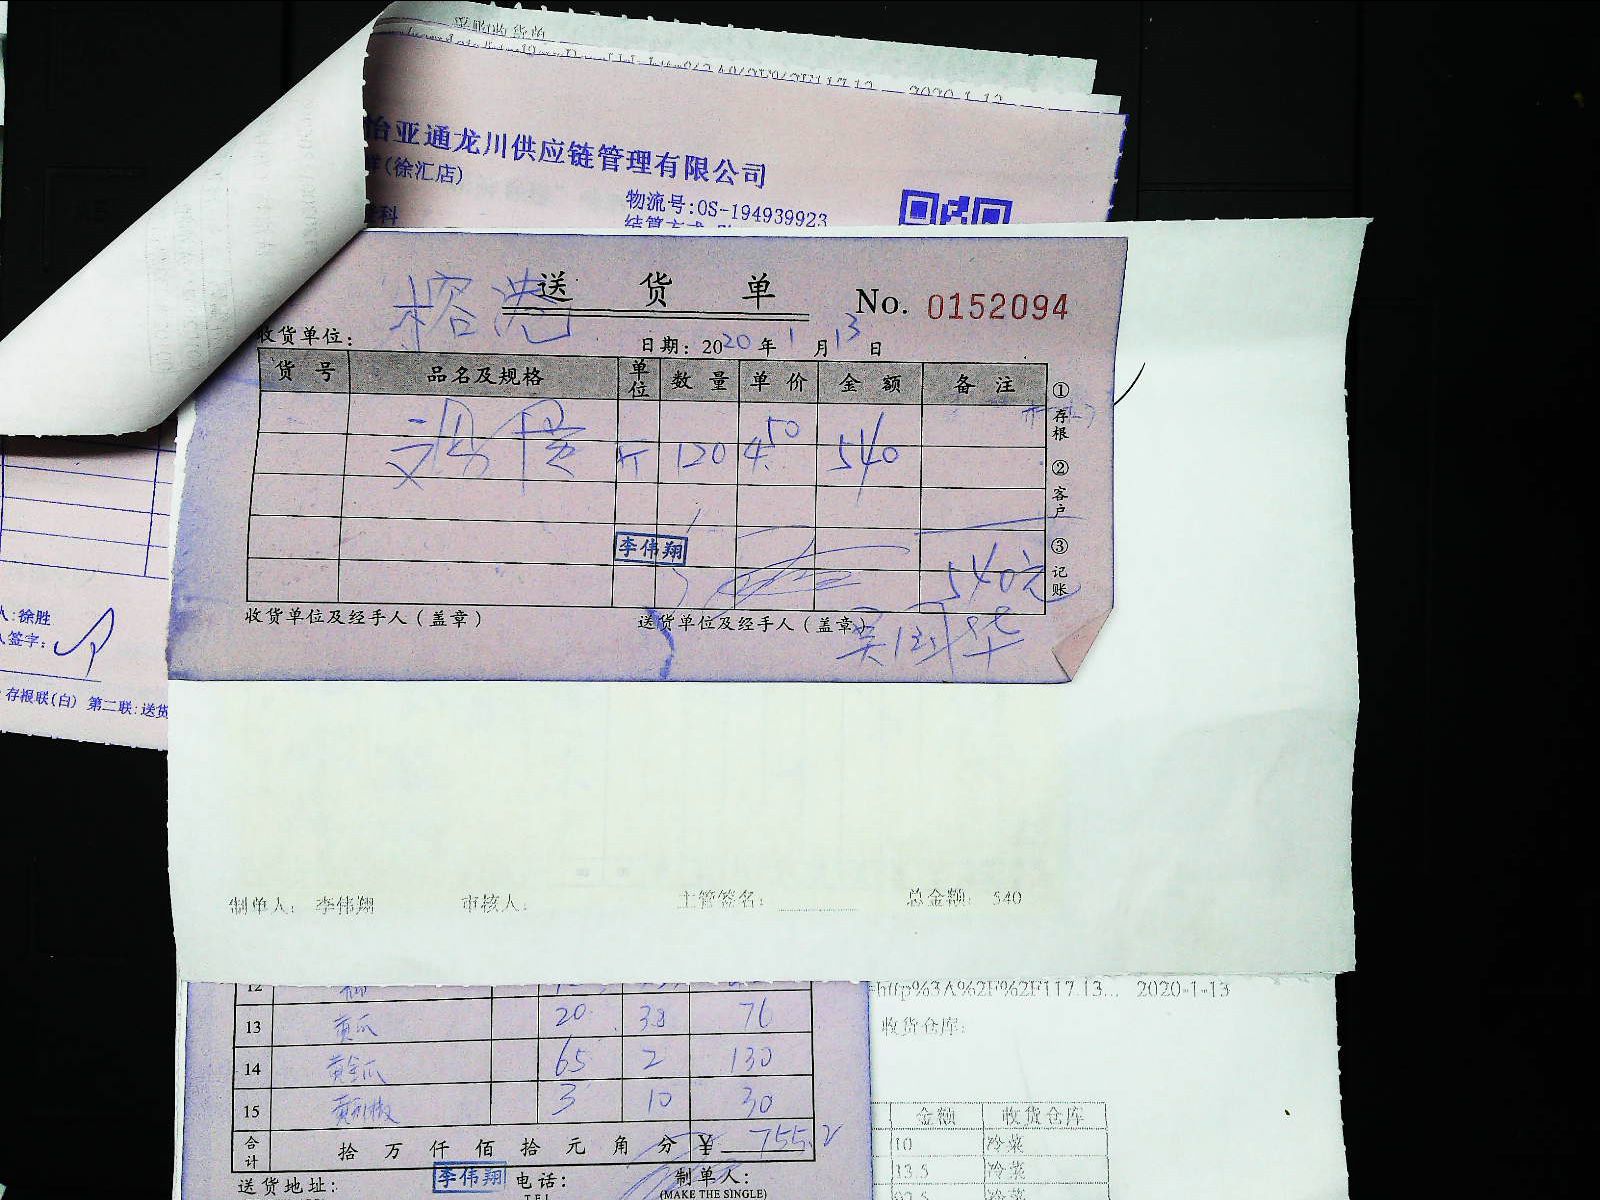 怡亚通龙川供应链管理有限公司
(徐汇店)
物流号:OS-194939923
2020-1-13
送 货 单
No. 0152094
收货单位:
日期: 2020 年 1 月 13 日
货 号 品名及规格 单位 数 量 单 价 金 额 备 注
斤 120 4.50 540
①存根 ②客户 ③记账
李伟翔
540元
收货单位及经手人(盖章) 送货单位及经手人(盖章)
人:徐胜
人签字:
存根联(白) 第二联:送货
制单人: 李伟翔 审核人: 主管签名: 总金额: 540
12
13 黄瓜 20 3.8 76
14 黄金瓜 65 2 130
15 3 10 30
合计 拾 万 仟 佰 拾 元 角 分 ¥ 755.2
送货地址: 李伟翔 电话: 制单人:
TEL (MAKE THE SINGLE)
=http%3A%2F%2F117.13... 2020-1-13
收货仓库:
金额 收货仓库
10 冷菜
13.5 冷菜